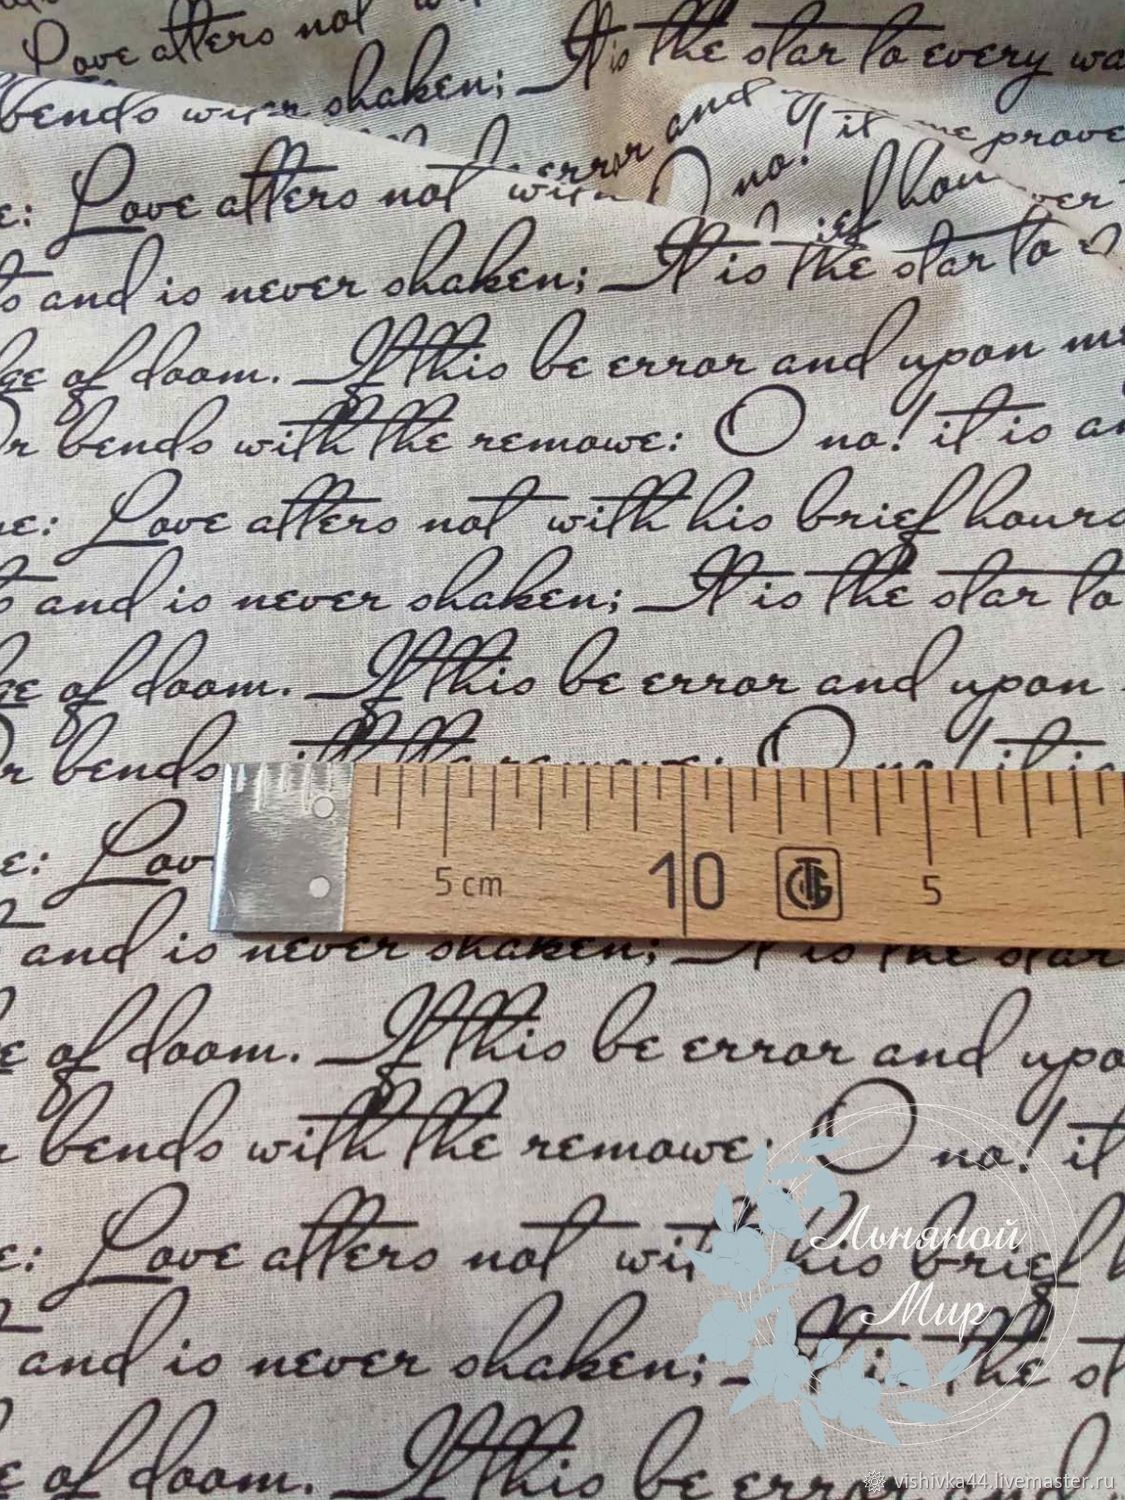 Love alters not
bends shaken; It is the star to every wa
error and it me prove
e: Love alters not with no! brief hou ver
s and is never shaken; It is the star to
ge of doom. If this be error and upon m
Or bends with the remowe: O no! it is an
e: Love alters not with his brief hours
s and is never shaken; It is the star to
ge of doom. If this be error and upon
r bends the remowe: O no! it is
5 cm 10 5
e: Lov
and is never shaken; It is the star
e of doom. If this be error and upo
r bends with the remowe: O no! it
e: Love alters not with his brief h
and is never shaken; It is the st
e of doom. If this be erro
Льняной
Мир
vishivka44.livemaster.ru